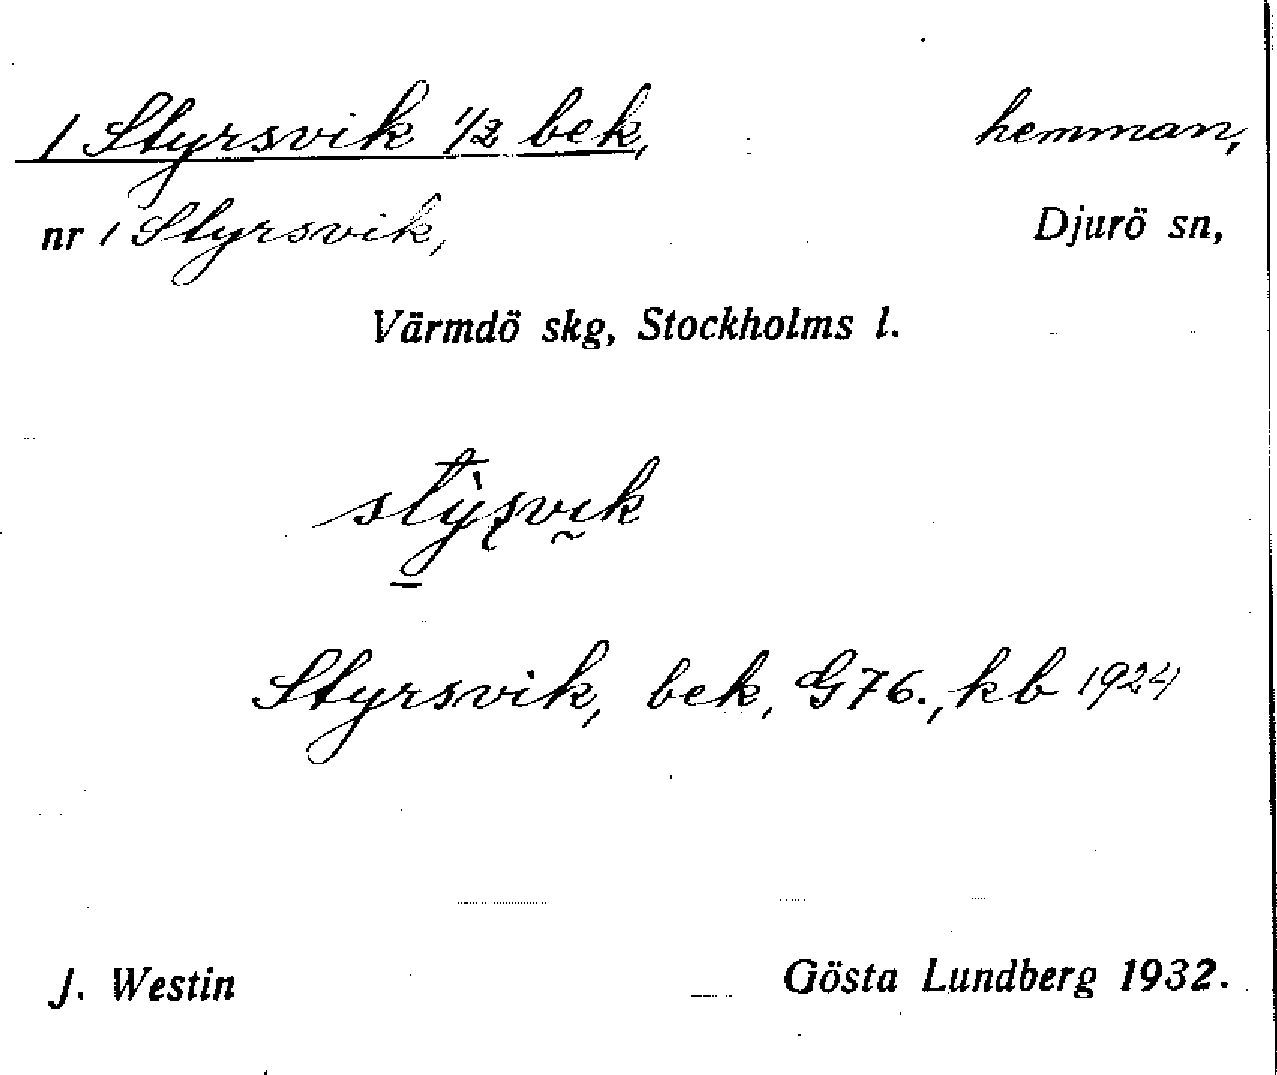 1 Styrsvik 1/2 bek, hemman,
nr 1 Styrsvik, Djurö sn,
Värmdö skg, Stockholms l.
stỳsvik
Styrsvik, bek, G76., kb 1924
J. Westin Gösta Lundberg 1932.